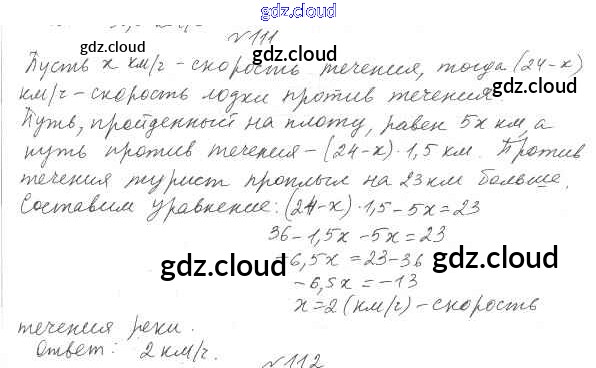 gdz.cloud
№111
Пусть x км/г - скорость течения, тогда (24-x)
км/г - скорость лодки против течения.
Путь, пройденный на плоту, равен 5x км, а
путь против течения - (24-x)·1,5 км. Против
течения турист проплыл на 23 км больше.
Составим уравнение: (24-x)·1,5-5x=23
36-1,5x-5x=23
-6,5x=23-36
-6,5x=-13
x=2 (км/г) - скорость
течения реки.
Ответ: 2 км/г.
№112
gdz.cloud
gdz.cloud
gdz.cloud
gdz.cloud
gdz.cloud
gdz.cloud
gdz.cloud
gdz.cloud